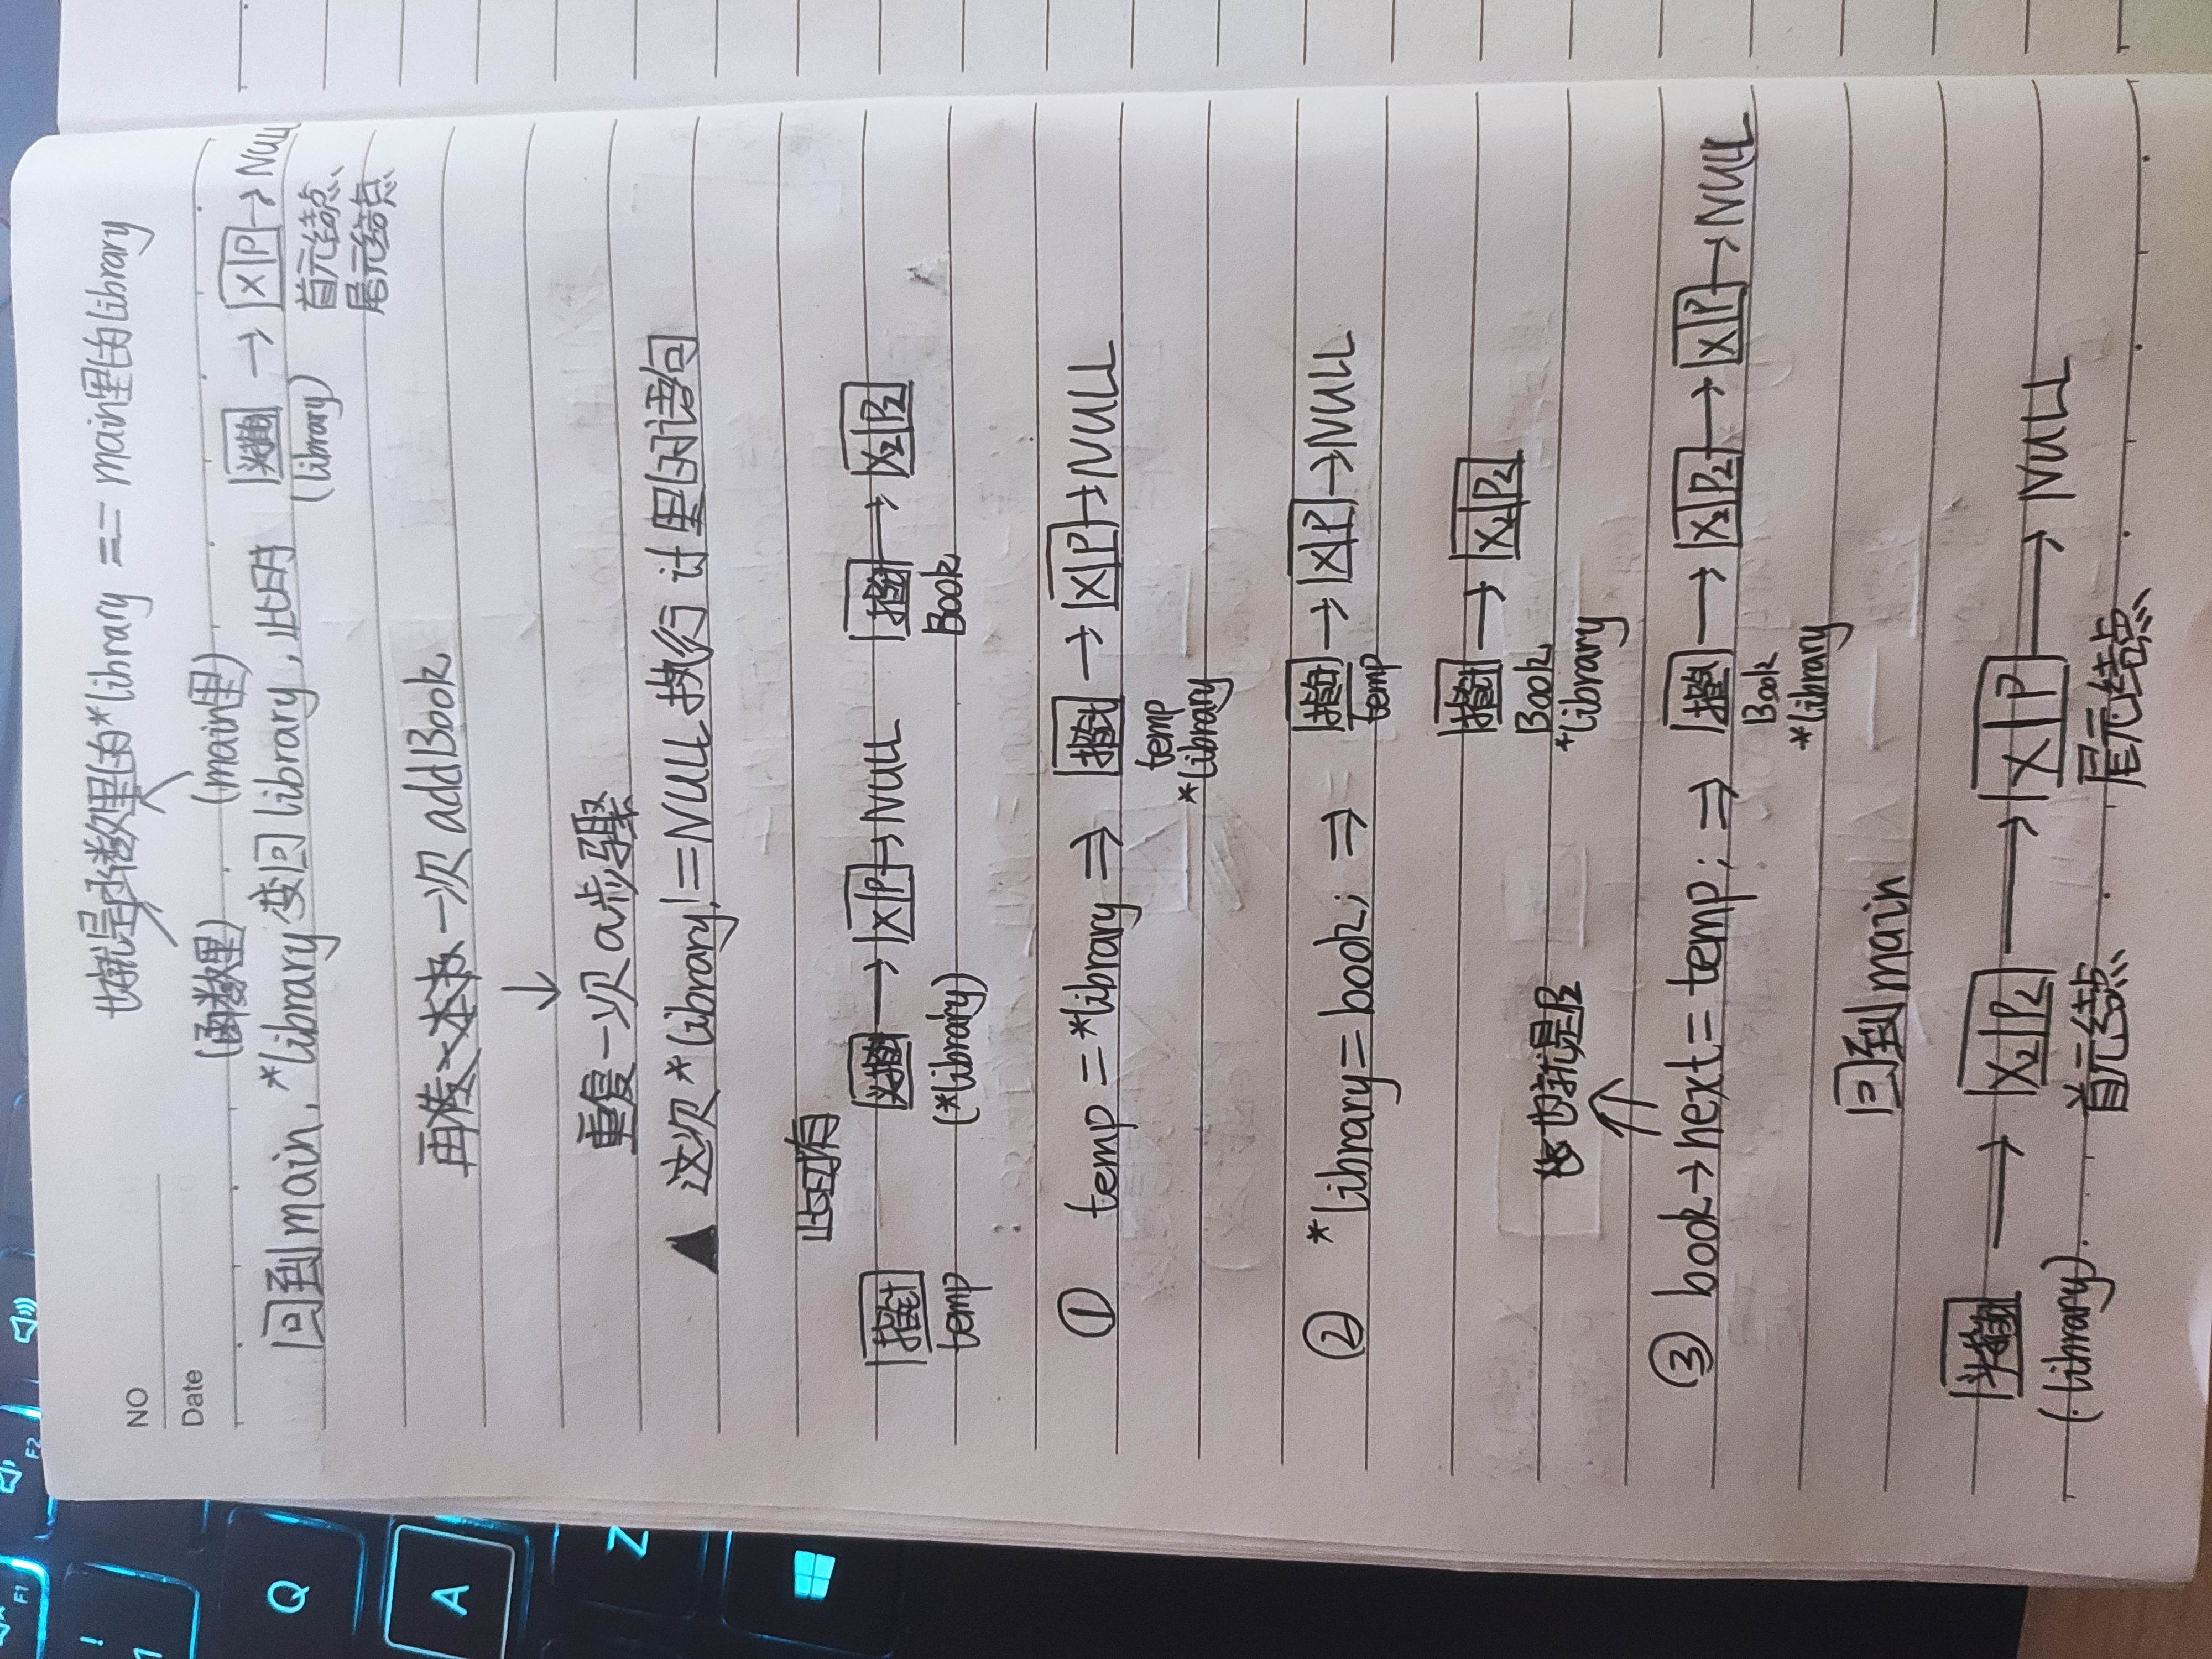 F1
F2
!
1
Q
A
Z
NO
Date
也就是函数里的*library == main里的library
(函数里) (main里)
回到main,*library变回library,此时 头指针 → X|P → NULL
(library) 首元结点、
尾元结点
再 一次addBook
↓
重复一次a步骤
▲ 这次*library!=NULL执行 里的语句
此时有
指针 头指针 → X|P → NULL 指针 → X2|P2
temp (*library) Book
① temp = *library ⇒ 指针 → X|P → NULL
temp
*library
② *library = book; ⇒ 指针 → X|P → NULL
temp
指针 → X2|P2
Book
*library
也就是P2
③ book→next = temp; ⇒ 指针 → X2|P2 → X|P → NULL
Book
*library
回到main
头指针 → X2|P2 → X|P → NULL
(library). 首元结点 尾元结点